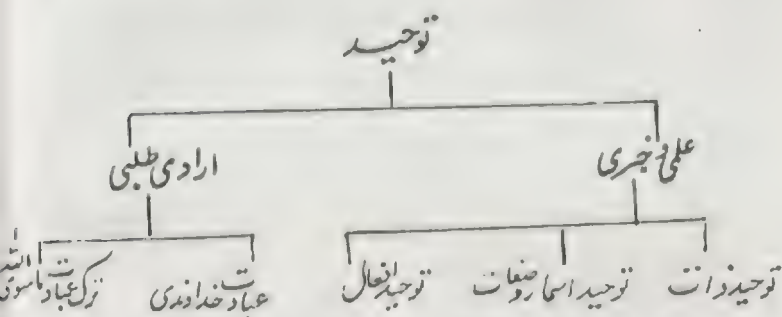 توحید
علمی و خبری
ارادی طلبی
توحید ذات
توحید اسما و صفات
توحید افعال
عبادت خداوندی
ترک عبادت ماسوی اللہ